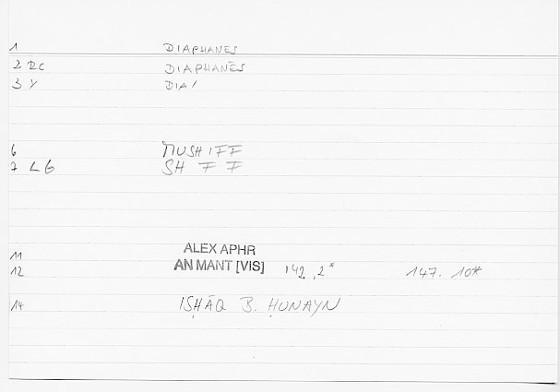 1 DIAPHANES
2 RC DIAPHANĒS
3 Y DIA/
6 MUSHIFF
7 LG SH F F
11 ALEX APHR
12 AN MANT [VIS] 142,2* 147.10*
14 ISḤĀQ B. ḤUNAYN